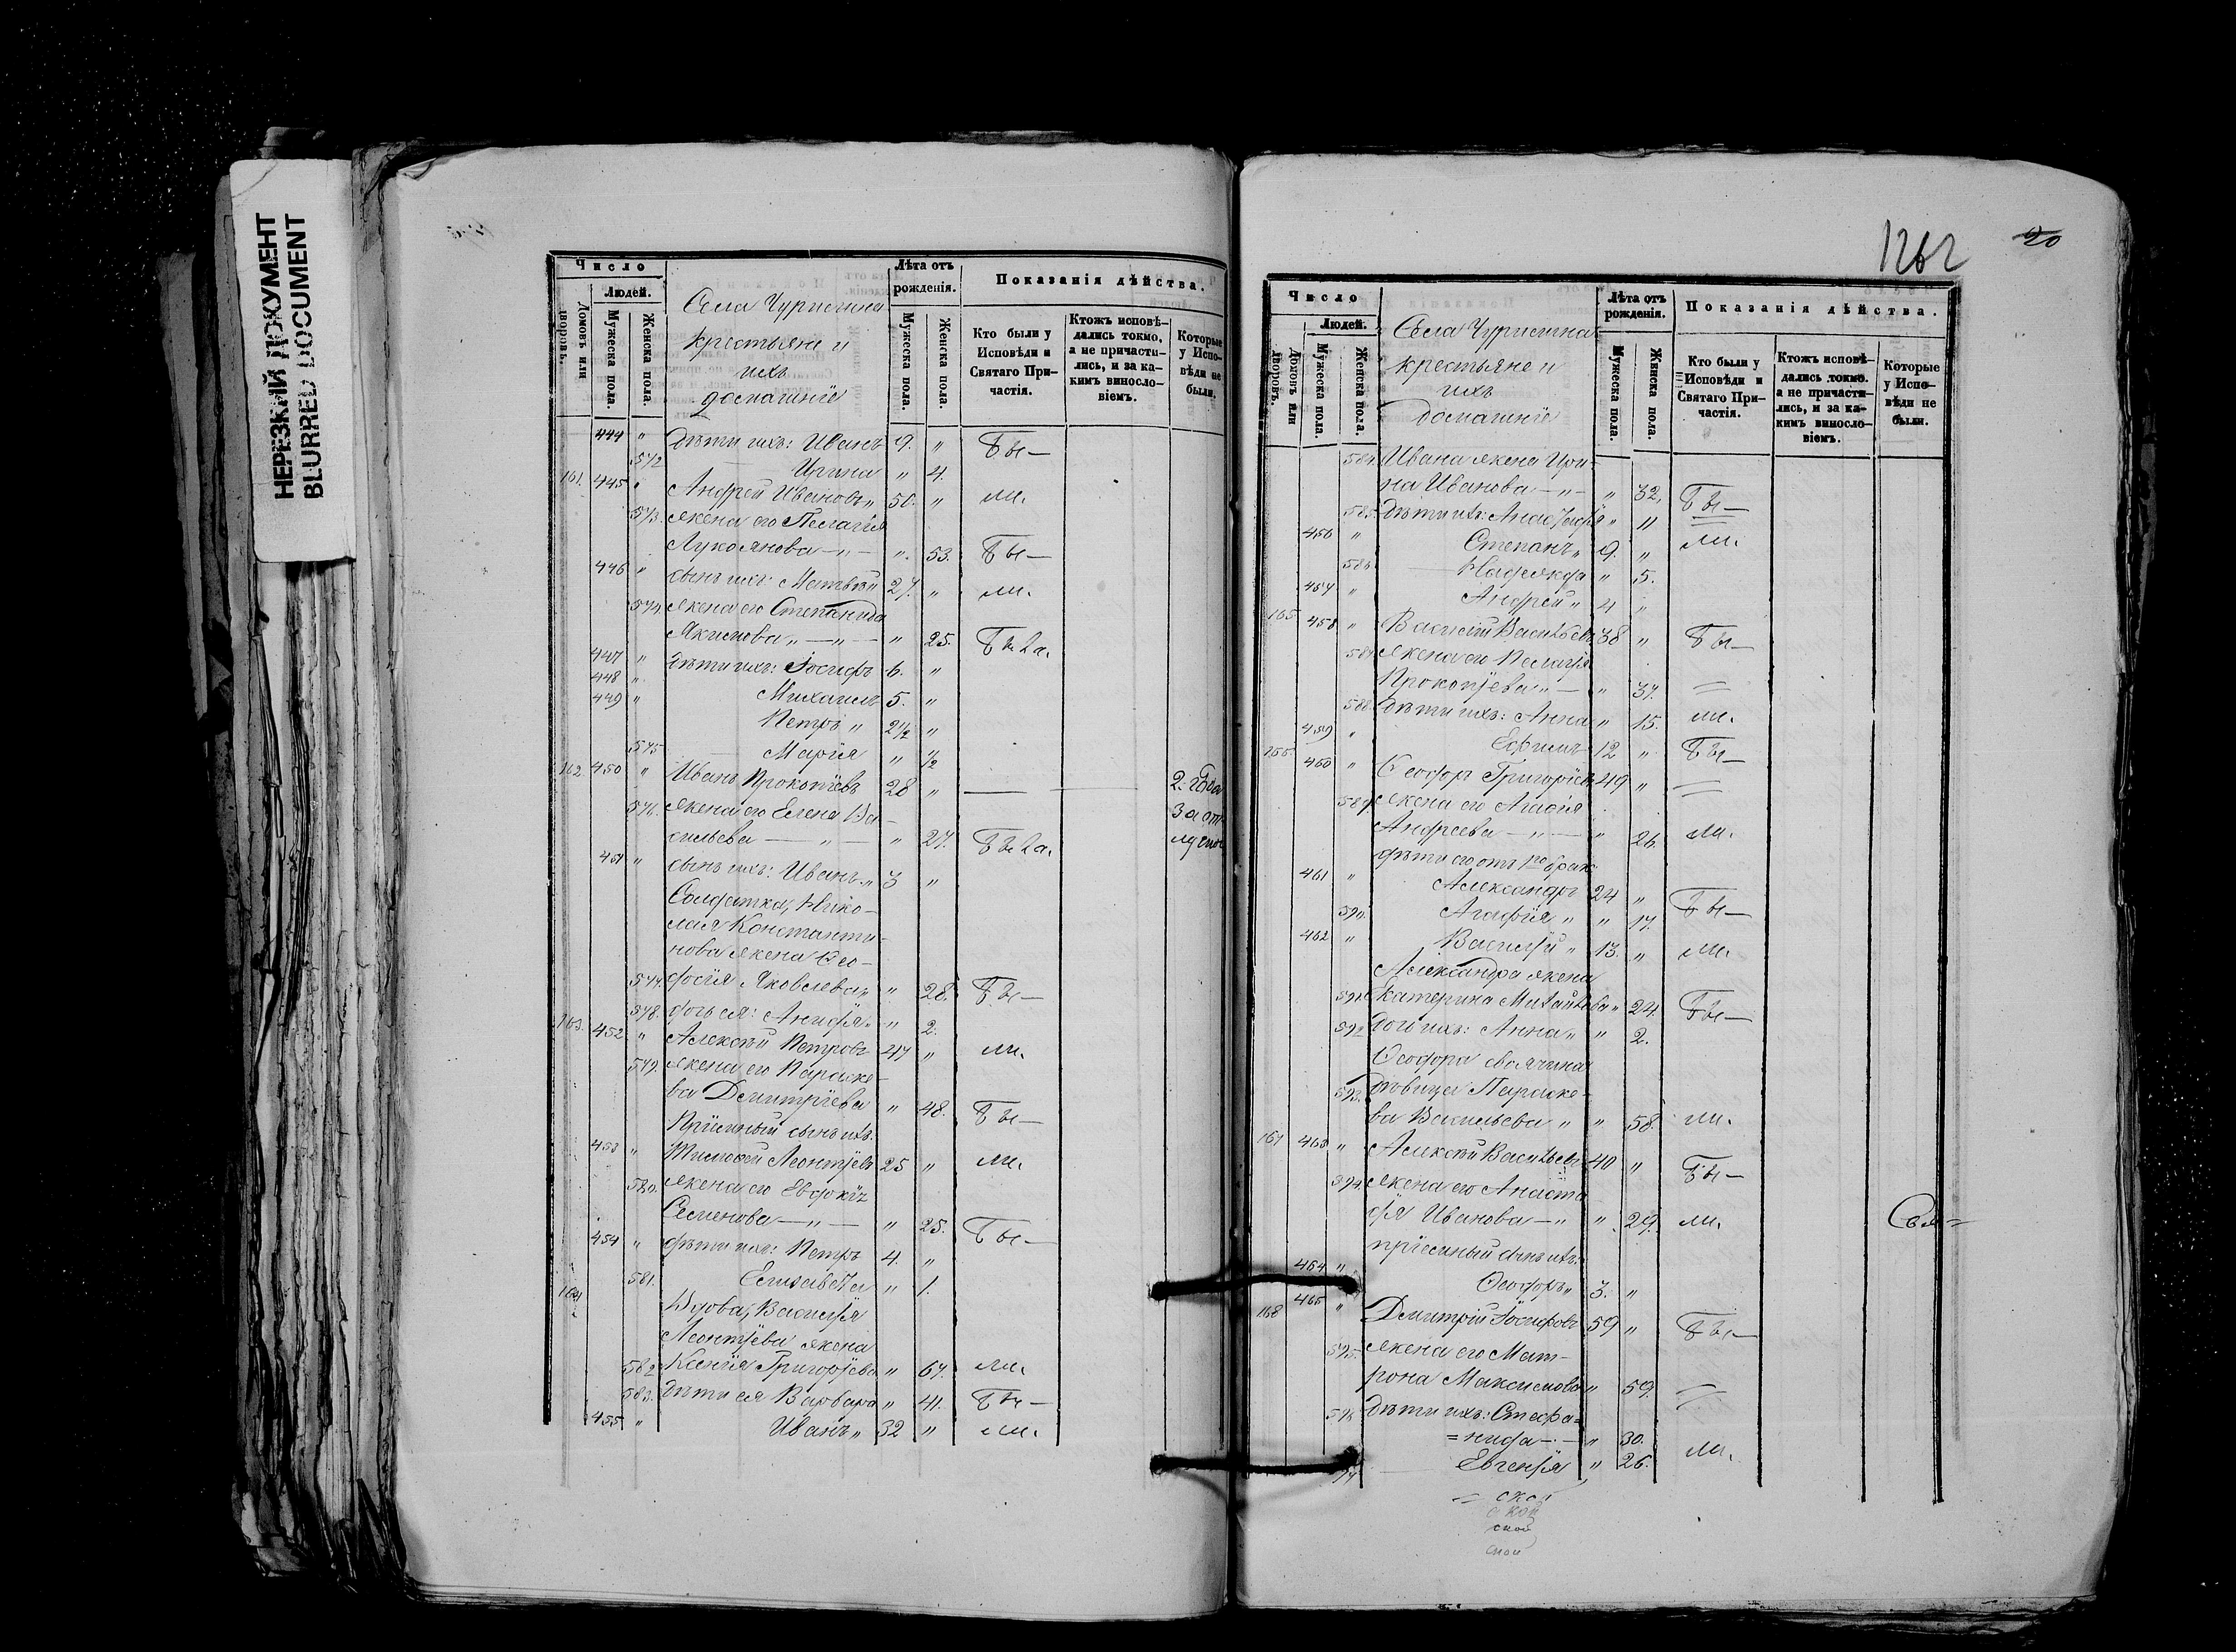 НЕРЕЗКИЙ ДОКУМЕНТ
BLURRED DOCUMENT
Число
Людей.
Домовъ или дворовъ.
Мужеска пола.
Женска пола.
Села Чуригина
крестьяне и
ихъ
домашніе
Лѣта отъ рожденія.
Мужеска пола.
Женска пола.
Показанія дѣйства.
Кто были у Исповѣди и Святаго Причастія.
Ктожъ исповѣдались токмо, а не причастились, и за какимъ винословіемъ.
Которые у Исповѣди не были.
444 " дѣти ихъ: Иванъ 9. " Бы—
572 — Ирина " 4.
161. 445 " Андрей Ивановъ " 50. " ли.
573. жена его Пелагія
Лукоянова — " — " 53. Бы—
446 " сынъ ихъ Матвѣй 27. " ли.
574. жена его Степанида
Якимова " — " — " 25. Была.
447 " дѣти ихъ: Іосифъ 6. "
448 " Михаилъ 5. "
449 " Петръ " 2½ "
575 — Марія " ½
162. 450 " Иванъ Прокопіевъ 28 " — — 2. года
576. жена его Елена Ва- за от
сильева — " — " 27. Была. луч
451 " сынъ ихъ: Иванъ " 3 "
Солдатка, Нико-
лая Константи-
нова жена Ѳео-
577. досія Яковлева " " 28. Бы—
578. дочь ея: Агафія " " 2.
163. 452 " Алексѣй Петровъ 47 " ли.
579. жена его Параске-
ва Димитріева " 48. Бы—
Пріемный сынъ ихъ
453 " Тимофей Леонтіевъ 25 " ли.
580. жена его Евдокія
Семенова — " — " 25. Бы—
454 " дѣти ихъ: Петръ 4. "
581. Елизавета " 1.
164 Вдова, Василія
Леонтіева жена
582 Ксенія Григоріева " 67. ли.
583. дѣти ея Варвара " 41. Бы—
455 " Иванъ " 32 " ли.
1262
20
Число
Людей.
Домовъ или дворовъ.
Мужеска пола.
Женска пола.
Села Чуригина
крестьяне и
ихъ
домашніе
Лѣта отъ рожденія.
Мужеска пола.
Женска пола.
Показанія дѣйства.
Кто были у Исповѣди и Святаго Причастія.
Ктожъ исповѣдались токмо, а не причастились, и за какимъ винословіемъ.
Которые у Исповѣди не были.
584. Ивана жена Ири-
на Иванова — " — " 32. Бы—
585. дѣти ихъ: Анастасія " 11
456 " Степанъ " 9. " ли.
586. — Надежда " 5.
457 " Андрей " 4 "
165. 458 " Василій Васильевъ 38 " Бы—
587. жена его Пелагія
Прокопіева " — " 37.
588. дѣти ихъ: Анна " 15. ли.
459 " Ефимъ 12 " Бы—
166. 460 " Ѳеодоръ Григоріевъ 49 "
589. жена его Агафія
Андреева — " — " 26. ли.
дѣти его отъ 1го брака
461 " Александръ 24 "
590. Агафія " " 17. Бы—
462 " Василій " 13. " ли.
Александра жена
591. Екатерина Михайлова " 24. Бы—
592 дочь ихъ: Анна " " 2.
Ѳеодора своячина
593. дѣвица Параске-
ва Васильева " " 58. ли.
167 463 " Алексѣй Васильевъ 40 " Бы—
594. жена его Анаста
сія Иванова — " " 29. ли.
пріемный сынъ ихъ
464 " Ѳеодоръ " 3. "
168 465 " Димитрій Іосифовъ 59 " Бы—
595. жена его Мат-
рона Максимова " 59.
596 дѣти ихъ: Стефа=
=нида — " 30.
Евгенія " 26. ли.